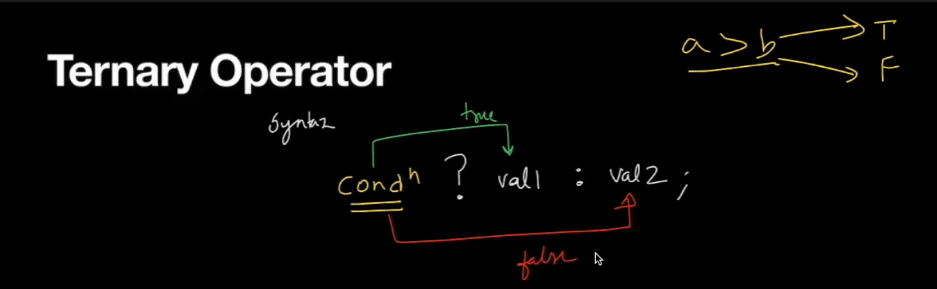 Ternary Operator
a > b T
F
Syntax
true
Condⁿ ? val1 : val2 ;
false